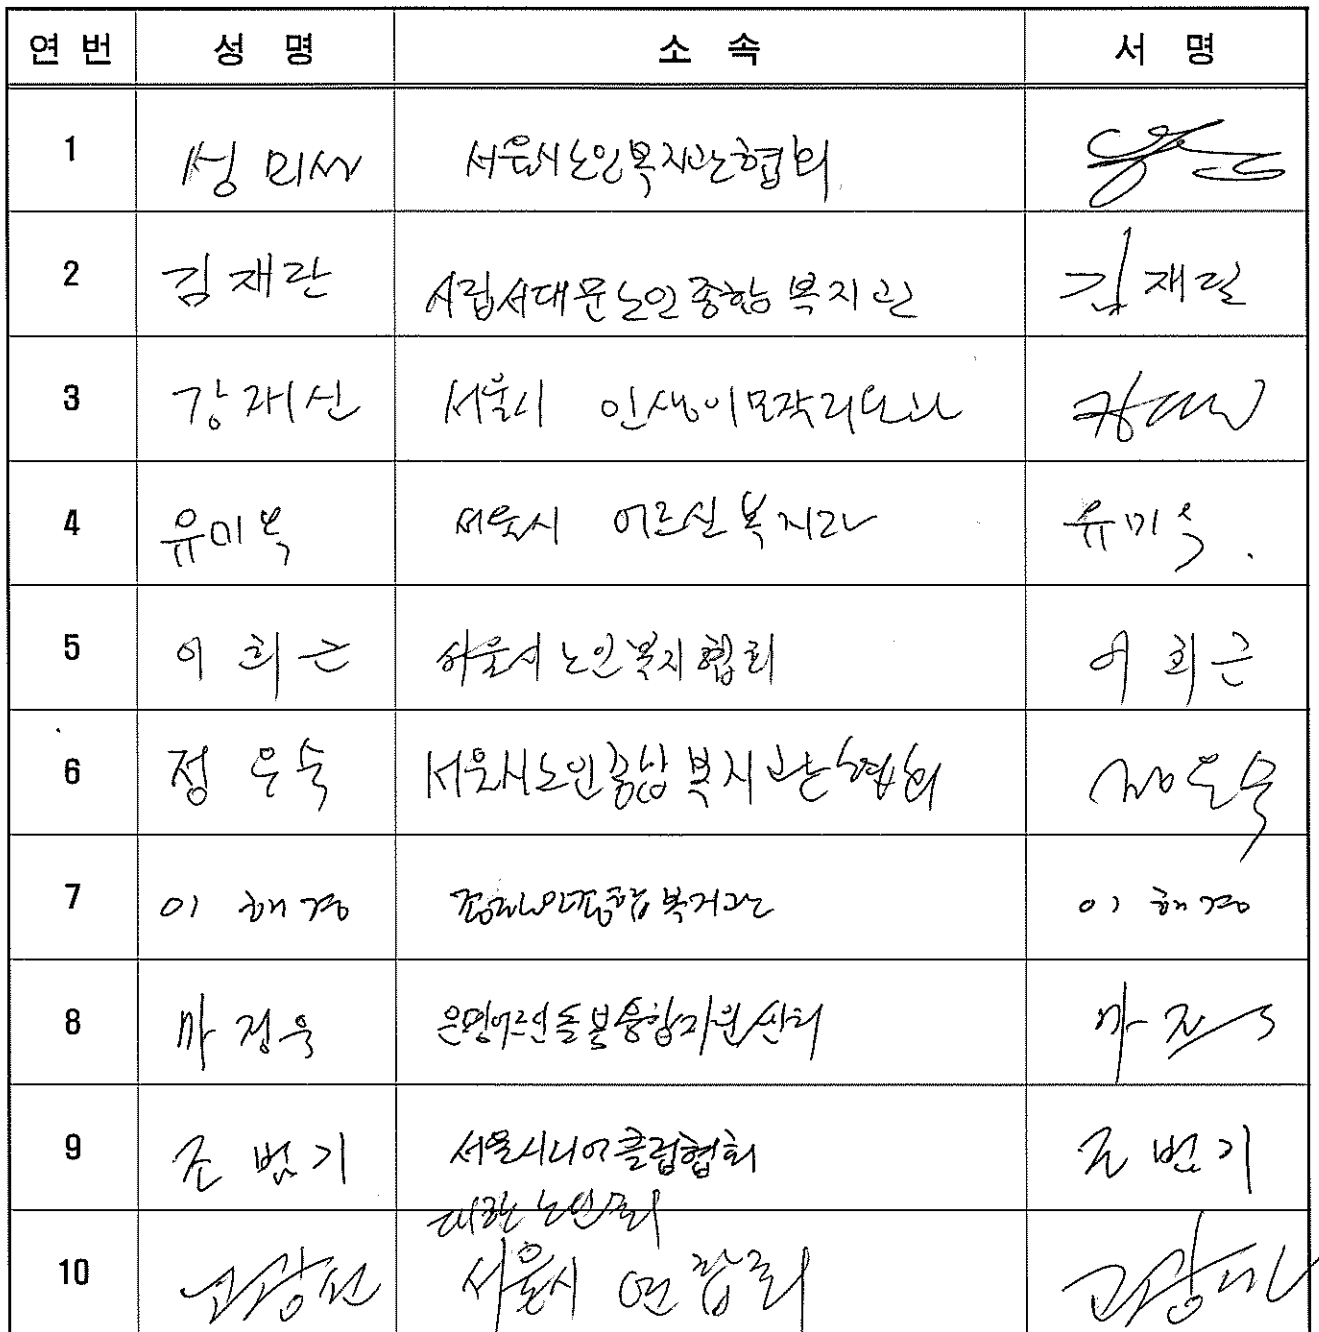 연 번 성 명 소 속 서 명
1 성 미선 서울시노인복지관협회
2 김재란 시립서대문노인종합복지관 김재란
3 강재신 서울시 인생이모작지원과
4 유미옥 서울시 어르신복지과 유미옥
5 이희근 서울시노인복지협회 이희근
6 정은숙 서울시노인종합복지관협회 정은숙
7 이해경 종합복지관 이해경
8 마정욱 은평어르신돌봄통합지원센터 마정욱
9 조범기 서울시니어클럽협회 조범기
대한노인회
10 고광선 서울시 연합회 고광선